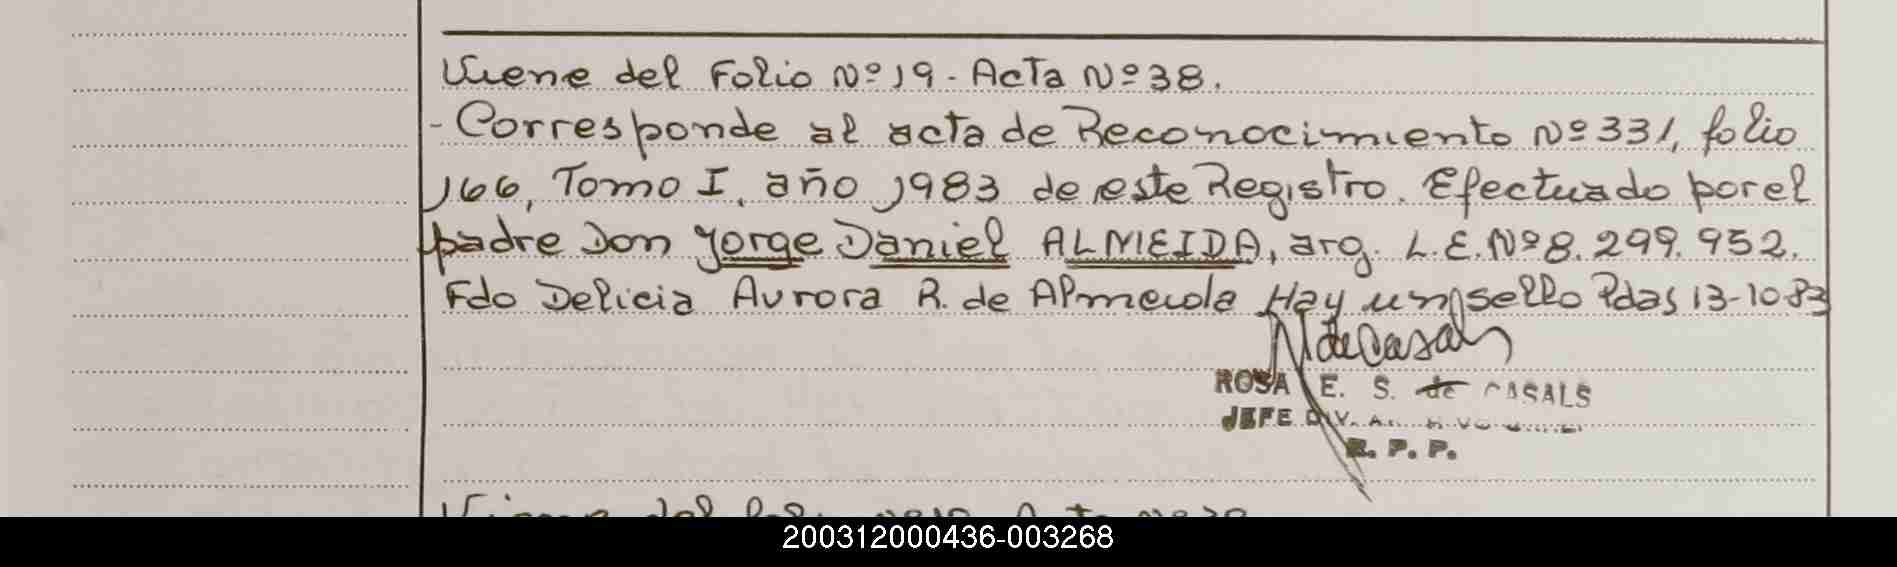 Viene del Folio Nº 19 - Acta Nº 38.
- Corresponde al acta de Reconocimiento Nº 331, folio
166, Tomo I, año 1983 de este Registro. Efectuado por el
padre Don Jorge Daniel ALMEIDA, arg. L.E. Nº 8.299.952.
Fdo Delicia Aurora R. de Almeida Hay un sello Pdas 13-10-83
de Casals
ROSA E. S. de CASALS
JEFE DIV.
R. P. P.
Viene del
200312000436-003268